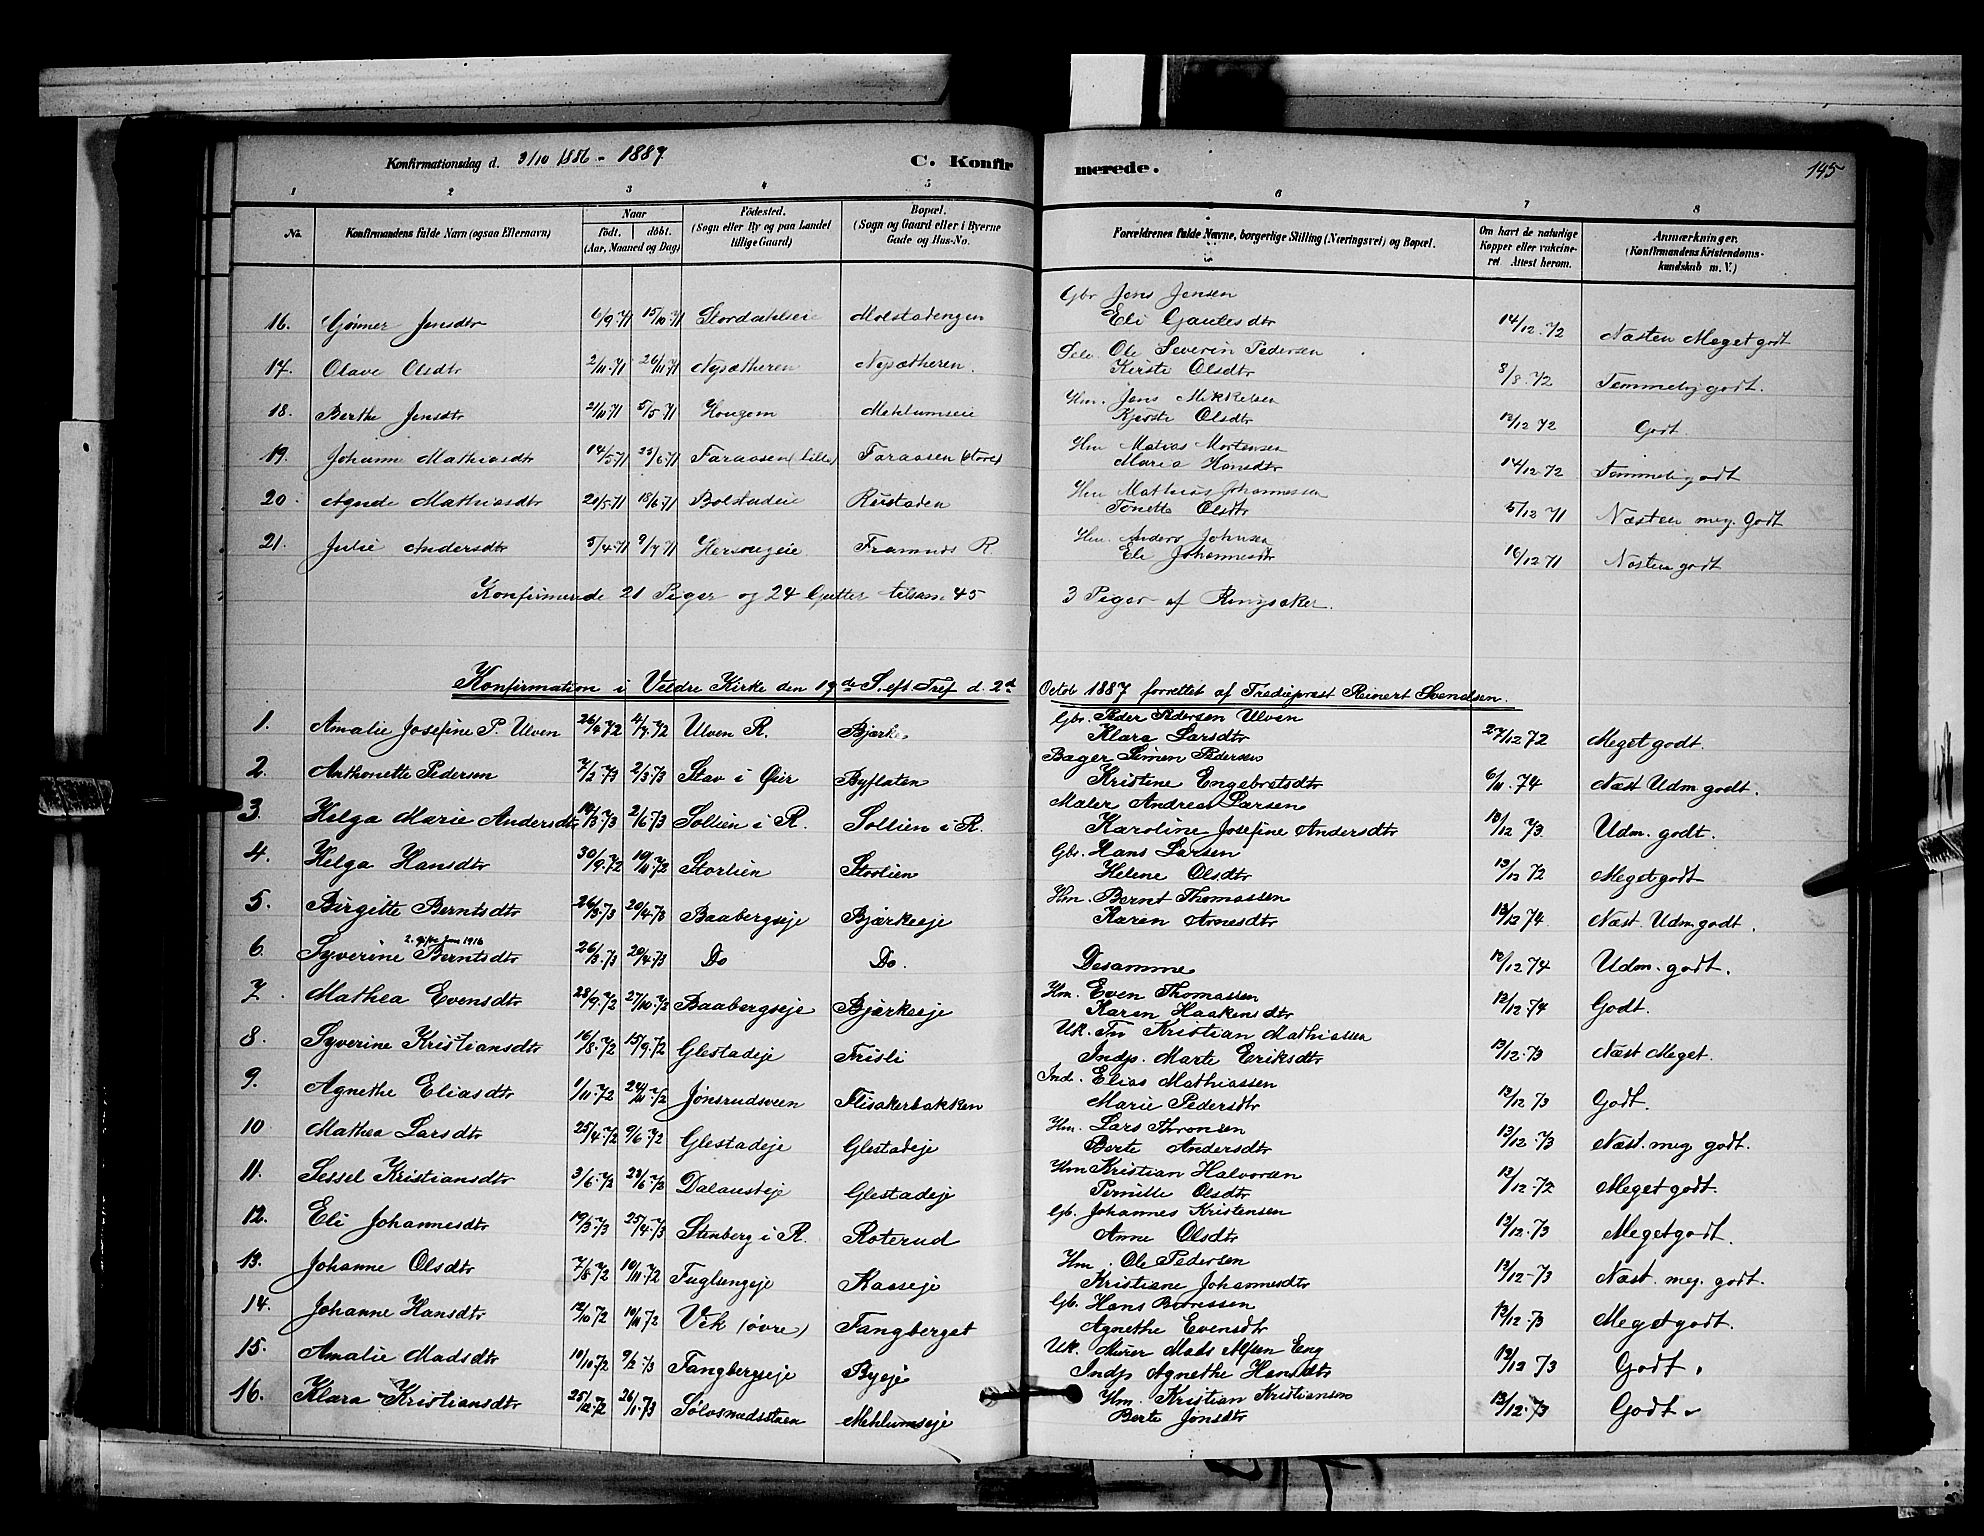 Konfirmationsdag d. 3/10 1886 - 1887.
C. Konfirmerede.
145
1 2 3 4 5 6 7 8
No. Konfirmandens fulde Navn (ogsaa Efternavn) Naar født. døbt. (Aar, Maaned og Dag) Fødested. (Sogn eller By og paa Landet tillige Gaard) Bopæl. (Sogn og Gaard eller i Byerne Gade og Hus-No. Forældrenes fulde Navne, borgerlige Stilling (Næringsvei) og Bopæl. Om havt de naturlige Kopper eller vakcineret Attest herom. Anmærkninger. (Konfirmandens Kristendomskundskab m. V.)
Gbr Jens Jensen
16. Gjöner Jensdtr 6/9.71 15/10.71 Stordahlseie Molstadengen Eli Gaulesdtr 14/12.72 Næsten Meget godt
Selv. Ole Severin Pedersen
17. Olave Olsdtr 2/11.71 26/11.71 Nysætheren Nysætheren. Kirsti Olsdtr 8/8.72 Temmelig godt.
Hm. Jens Mikkelsen
18. Berthe Jensdtr 5/5.71 Hougom Mehlumseie Kjersti Olsdtr 12/12 72 Godt.
Hm Matias Mortensen
19. Johanne Mathiasdtr 14/5.71 25/6.71 Faraasen (lille) Faraasen (store) Maria Hansdtr 14/12.72 Temmelig godt
Hm Mathias Johannessen
20. Agnde Mathiasdtr 21/5.71 18/6.71 Bolstadeie Rustaden Tonette Olsdtr 5/12 71 Næsten meg. Godt
Hm. Anders Johnsen
21. Julie Andersdtr 5/4.71 9/7.71 Hersougeie Framnes R Eli Johannesdtr 16/12 71 Næsten godt
Konfirmerede 21 Piger og 24 Gutter tilsam 45 3 Piger af Ringsaker.
Konfirmation i Veldre Kirke den 19de S. eft. Tref d. 2d Octob 1887 forrettet af Tredieprest Reinert Svendsen.
Gbr. Peder Pedersen Ulven
1. Amalie Josefine P. Ulven 26/4.72 4/7.72 Ulven R. Bjørke Klara Larsdtr 27/12 72 Meget godt.
Bager Simen Pedersen
2. Anthonette Pedersen 7/2.73 2/3.73 Stav i Øier Byflaten Kristine Engebretsdtr 6/11.74 Næst Udm. godt.
Maler Andreas Larsen
3. Helga Marie Andersdtr 19/3.73 2/6.73 Sollien i R. Sollien i R. Karoline Josefine Andersdtr 13/12 73 Udm. godt.
Gbr. Hans Larsen
4. Helga Hansdtr 30/9.72 10/11.72 Storlien Storlien Helene Olsdtr 13/12 72 Meget godt
Hm. Bernt Thomassen
5. Birgitte Berntsdtr 26/3.73 20/4.73 Baabergseje Bjørkeeje Karen Arnesdtr 12/12 74 Næst. Udm. godt.
2. gift Jan 1916
6. Syverine Berntsdtr 26/3.73 20/4.73 Do Do. Desamme 12/12 74 Udm. godt.
Hm. Even Thomassen
7. Mathea Evensdtr 28/9.72 27/10.72 Baabergseje Bjørkeeje Karen Haakensdtr 12/12.74 Godt.
Uk. Tn Kristian Mathiassen
8. Syverine Kristiansdtr 16/8.72 15/9.72 Glestadeje Frisli Indp. Marte Eriksdtr 13/12.73 Næst Meget.
Ind. Elias Mathiassen
9. Agnethe Eliasdtr 1/11.72 24/11.72 Jønsrudsveen Flisakerbakken Marie Pedersdtr 12/12 73 Godt.
Hm. Lars Thronsen
10 Mathea Larsdtr 25/4.72 9/6.72 Glestadeje Glestadeje Berte Andersdtr 13/12.73 Næst. meg godt.
Hm Kristian Halvorsen
11. Sessel Kristiansdtr 3/6.72 23/6.72 Dalausteje Glestadeje Pernille Olsdtr 13/12.72 Meget godt.
Gb. Johannes Kristensen
12. Eli Johannesdtr 19/3.73 25/4.73 Stenberg i R. Roterud Anne Olsdtr 12/12.73 Meget godt.
Hm. Ole Pedersen
13. Johanne Olsdtr 7/8.72 10/11.72 Fuglungeje Kasseje Kristiane Johannesdtr 13/12-73 Næst. meg. godt.
Gb. Hans Børresen
14. Johanne Hansdtr 12/10 72 10/11 72 Vek (øvre) Fangberget Agnethe Evensdtr 12/12.73 Meget godt.
Uk. Murer Mads Alfsen Eng
15. Amalie Madsdtr 10/10.72 9/2.73 Fangbergseje Byeje Indp Agnethe Hansdtr 12/12 73 Godt.
Hm. Kristian Kristiansen
16. Klara Kristiansdtr 25/12.72 26/1.73 Sølvsnedsstuen Mehlumseje Berte Jonsdtr 13/12.73 Godt.